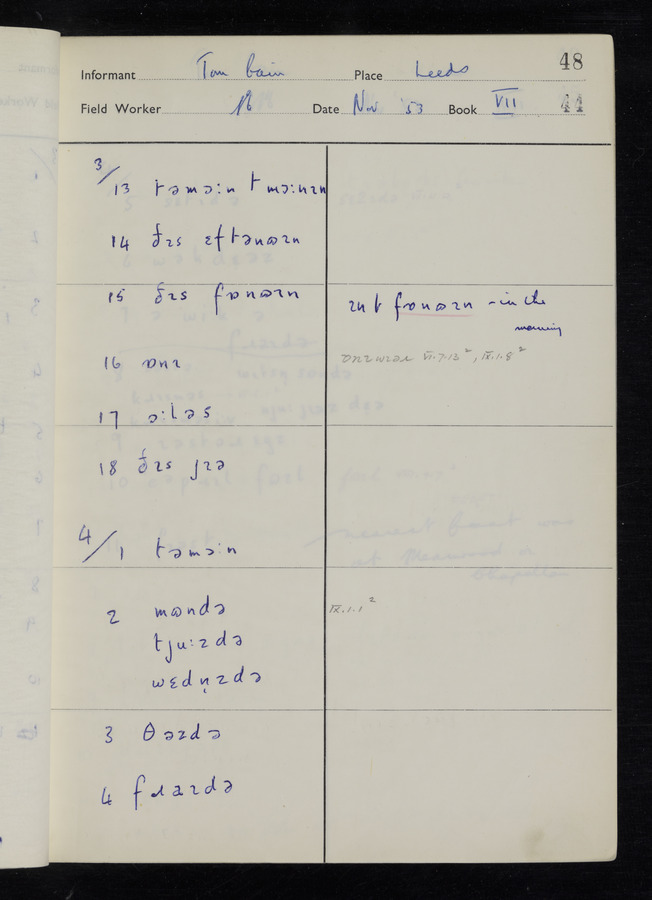 48
Informant Tom Cain Place Leeds
Field Worker Date Nov 53 Book VII 44
3/13 təmɔːn t mɔːnɪn
14 ðɪs ɛftənʊən
15 ðɪs fɒnʊɪn ɪn t fɒnʊɪn - in the
morning
16 ɒnɪ VI.7.12², IX.1.8²
17 ɔːləs
18 ðɪs jɪə
4/1 təmɔːn
2 mʊndə IX.1.1²
tjuːzdə
wɛdn̩zdə
3 θəzdə
4 fɹaɪdə